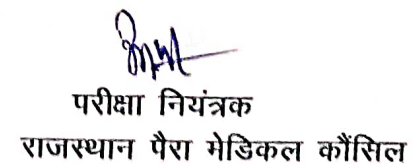 परीक्षा नियंत्रक
राजस्थान पैरा मेडिकल कौंसिल